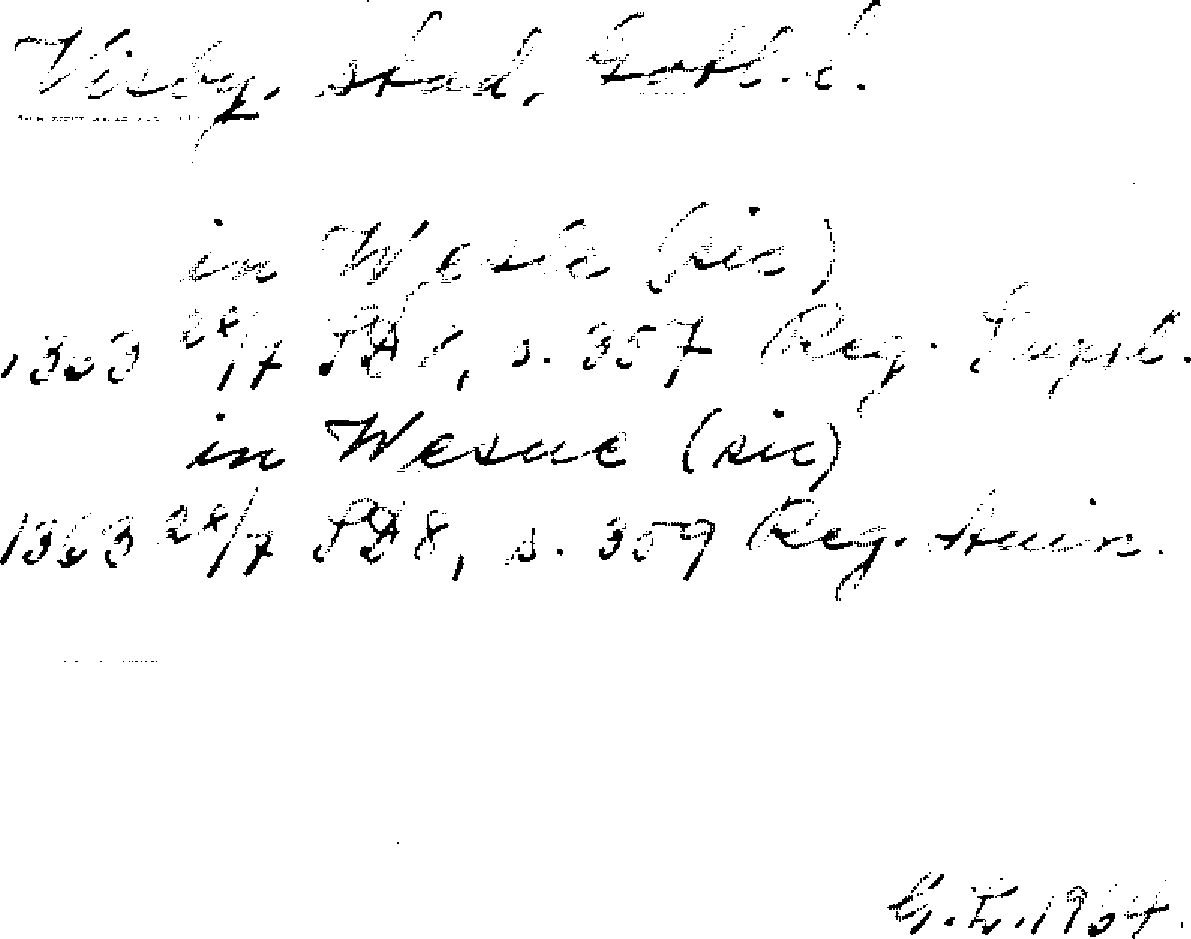 Visby, stad, Gotl. l.
in Wesle (sic)
1363 28/7 SD 8, s. 357 Reg. Suppl.
in Wesue (sic)
1363 28/7 SD 8, s. 359 Reg. Avin.
1964.